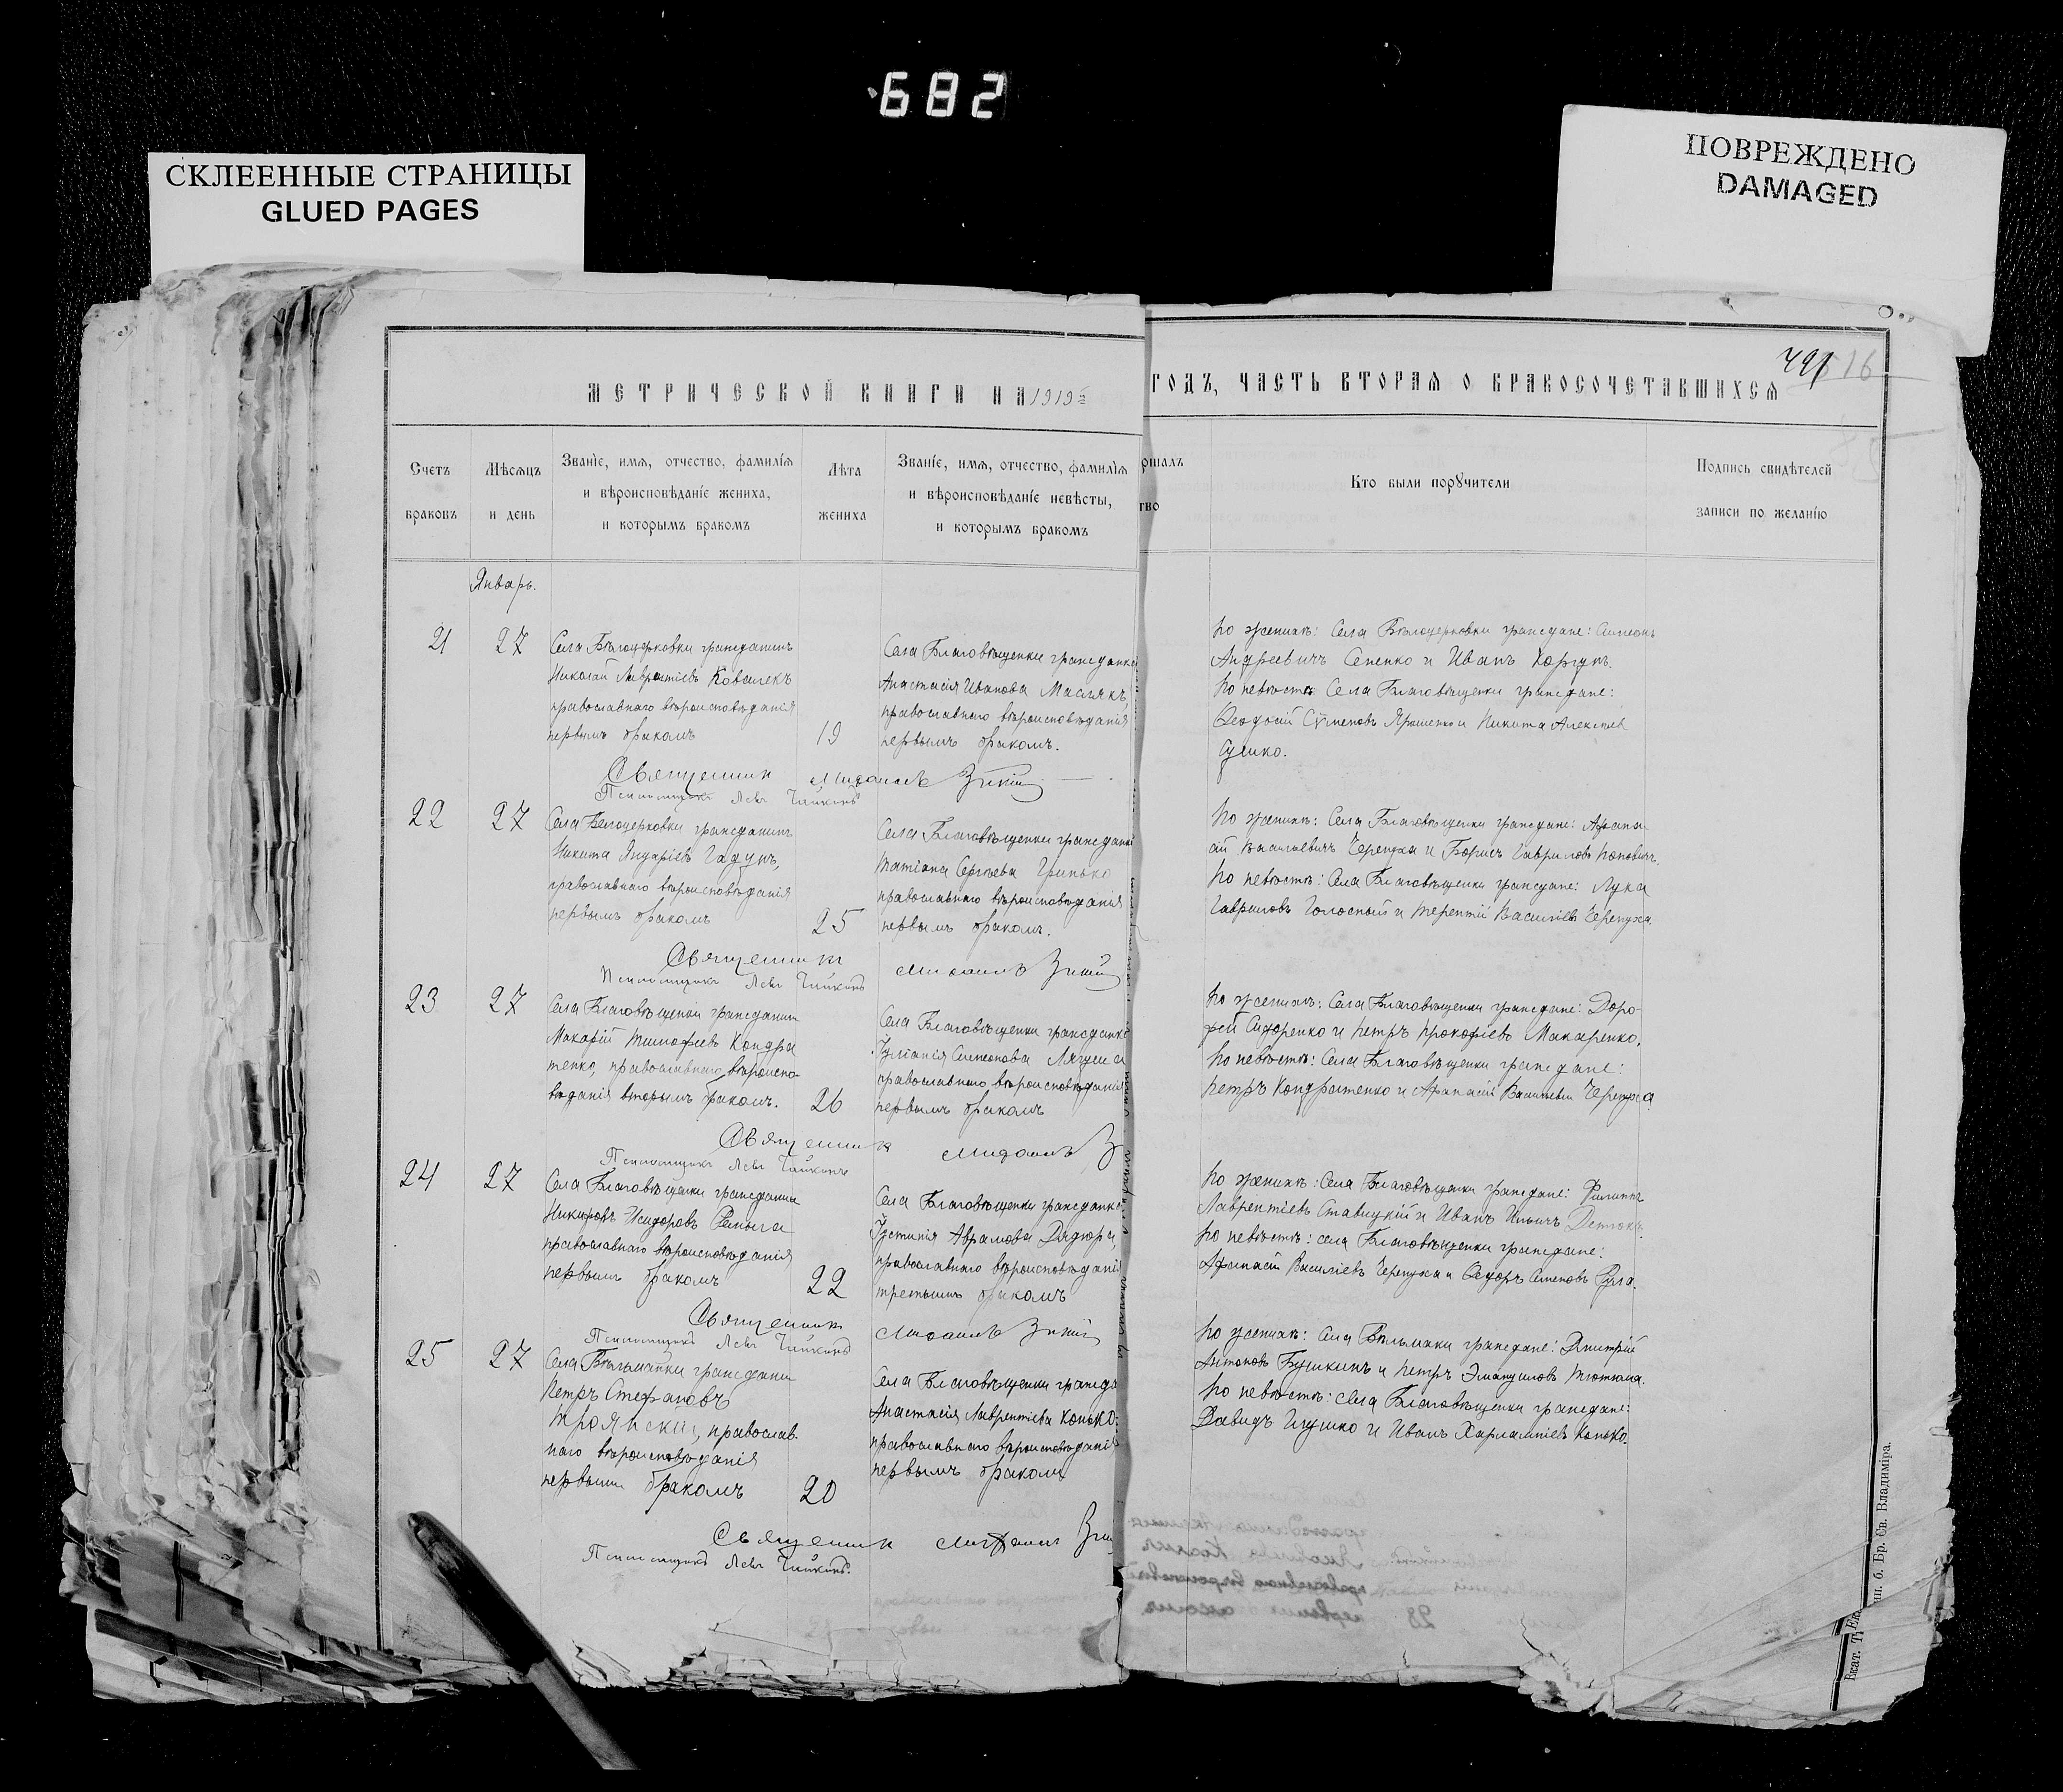 682
СКЛЕЕННЫЕ СТРАНИЦЫ
GLUED PAGES
ПОВРЕЖДЕНО
DAMAGED
МЕТРИЧЕСКОЙ КНИГИ НА 1919 ГОДЪ, ЧАСТЬ ВТОРАЯ О БРАКОСОЧЕТАВШИХСЯ
Счетъ
браковъ
Мѣсяцъ
и день
Званіе, имя, отчество, фамилія
и вѣроисповѣданіе жениха,
и которымъ бракомъ
Лѣта
жениха
Званіе, имя, отчество, фамилія
и вѣроисповѣданіе невѣсты,
и которымъ бракомъ
Кто были порꙋчители
Подпись свидѣтелей
записи по желанію
Январь.
21
27
Села Бѣлоцерковки гражданинъ
Николай Лаврентіевъ Ковалекъ
православнаго вѣроисповѣданія
первымъ бракомъ
19
Села Благовѣщенки гражданка
Анастасія Иванова Маслякъ,
православнаго вѣроисповѣданія
первымъ бракомъ.
По женихѣ: Села Бѣлоцерковки граждане: Симеонъ
Андреевичъ Сененко и Иванъ Коргунъ.
По невѣстѣ Села Благовѣщенки граждане:
Ѳеодосій Сѵменовъ Ярошенко и Никита Алексіев
Сушко.
Священник Михаилъ
Псаломщикъ Левъ
22
27
Села Белоцерковки гражданинъ
Никита Гадунъ,
православнаго вѣроисповѣданія
первымъ бракомъ
25
Села Благовѣщенки граждан
Татіана Сергѣева Гринько
православнаго вѣроисповѣданія
первымъ бракомъ.
По женихѣ: Села Благовѣщенки граждане: Афана
ій Васильевичъ Черепуха и Борисъ Гавриловъ Поповичъ.
По невѣстѣ: Села Благовѣщенки граждане: Лука
Гавриловъ Голосный и Терентій Василіевъ Черепуха.
Священникъ Михаилъ
Псаломщикъ Левъ
23
27
Села Благовѣщенки гражданин
Макарій Тимофеевъ Кондра
тенко, православнаго вѣроиспо-
вѣданія вторымъ бракомъ.
26
Села Благовѣщенки гражданка
Іуліанія Симеонова
православнаго вѣроисповѣданія
первымъ бракомъ
По женихѣ: Села Благовѣщенки граждане: Доро-
фей Сидоренко и Петръ Прокофіевъ Макаренко.
По невѣстѣ: Села Благовѣщенки граждане:
Петръ Кондратенко и Афанасій Василіевъ Черепуха
Священник Михаилъ
Псаломщикъ Левъ
24
27
Села Благовѣщенки гражданин
Исидоровъ
православнаго вѣроисповѣданія
первымъ бракомъ
22
Села Благовѣщенки гражданка
Іустинія Аврамова Дядюра,
православнаго вѣроисповѣданія
третьимъ бракомъ
По женихѣ: Села Благовѣщенки граждане: Филиппъ
Лаврентіевъ Ставицкій и Иванъ Ильичъ
По невѣстѣ: села Благовѣщенки граждане:
Афанасій Василіевъ Черепуха и Ѳедоръ Семеновъ
Священникъ Михаилъ
Псаломщикъ Левъ
25
27
Села Бѣльманки граждани
Петръ Стефановъ
Троянскій, православ-
наго вѣроисповѣданія
первымъ бракомъ
20
Села Благовѣщенки гражда
Анастасія Лаврентіева Конько
православнаго вѣроисповѣданія
первымъ бракомъ
По женихѣ: Села Бѣльманки граждане: Дмитрій
Антоновъ Бушкинъ и Петръ Эмануиловъ
По невѣстѣ: Села Благовѣщенки граждане:
Давидъ и Иванъ Харлампіевъ Конько.
Священник Михаил
Псаломщикъ Левъ
б. Бр. Св. Владиміра.